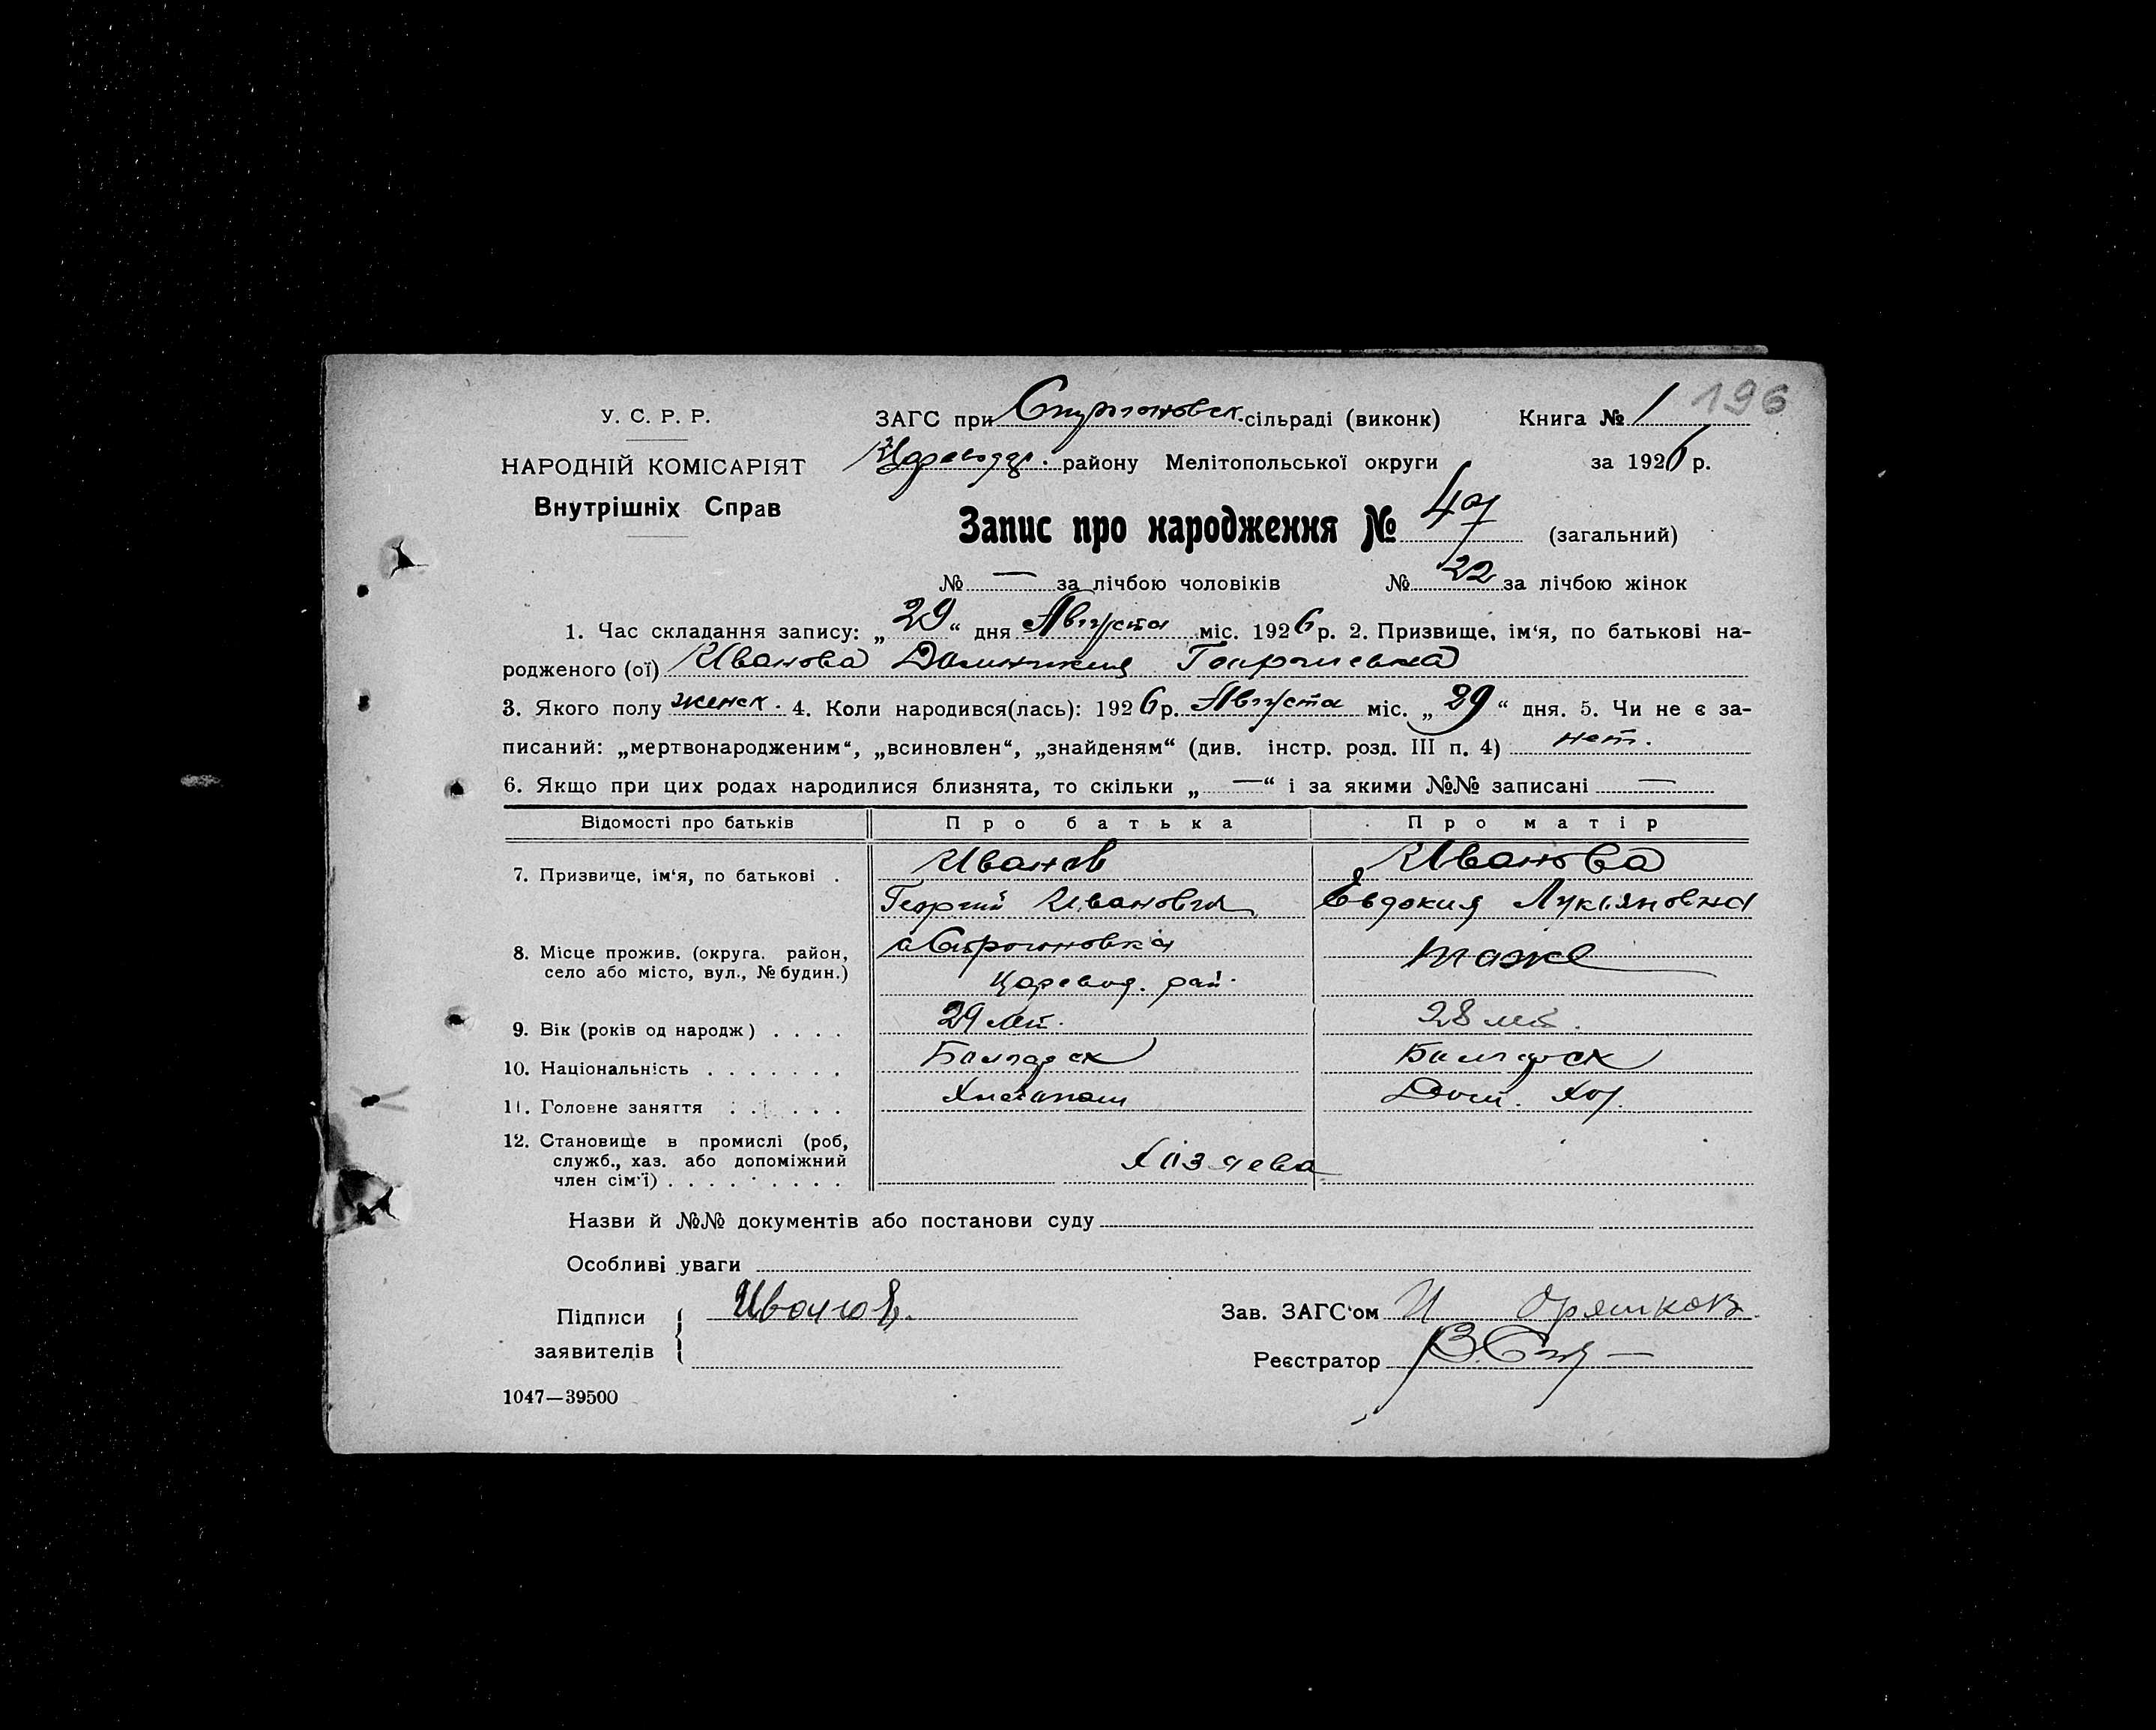 196
У. С. Р. Р.
ЗАГС при Строгановск. сільраді (виконк)
Книга № 1
НАРОДНІЙ КОМІСАРІЯТ
Царевод. району Мелітопольської округи
за 1926 р.
Внутрішніх Справ
Запис про народження № 47 (загальний)
№ — за лічбою чоловіків № 22 за лічбою жінок
1. Час складання запису: „29“ дня Августа міс. 1926 р. 2. Призвище, ім‘я, по батькові на-
родженого (ої) Иванова Доминикия Георгиевна
3. Якого полу женск. 4. Коли народився(лась): 1926 р. Августа міс. „29“ дня. 5. Чи не є за-
писаний: „мертвонародженим“, „всиновлен“, „знайденям“ (див. інстр. розд. III п. 4) нет.
6. Якщо при цих родах народилися близнята, то скільки „—“ і за якими №№ записані —
Відомості про батьків Про батька Про матір
7. Призвище, ім‘я, по батькові . Иванов Иванова
Георгий Иванович Евдокия Лукияновна
8. Місце прожив. (округа. район, село або місто, вул., № будин.) с Строгоновка тоже
Царевод. рай.
9. Вік (років од народж) . . . . 29 лет. 28 лет.
10. Національність . . . . . . . Болгарск Болгарск
11. Головне заняття . . . . . . Хлебопаш Дом. Хоз.
12. Становище в промислі (роб, служб., хаз. або допоміжний член сім‘ї) . . . . . . . . . Хозяева
Назви й №№ документів або постанови суду
Особливі уваги
Підписи заявителів { Иванов.
Зав. ЗАГС‘ом И Орешков
Реєстратор
1047—39500